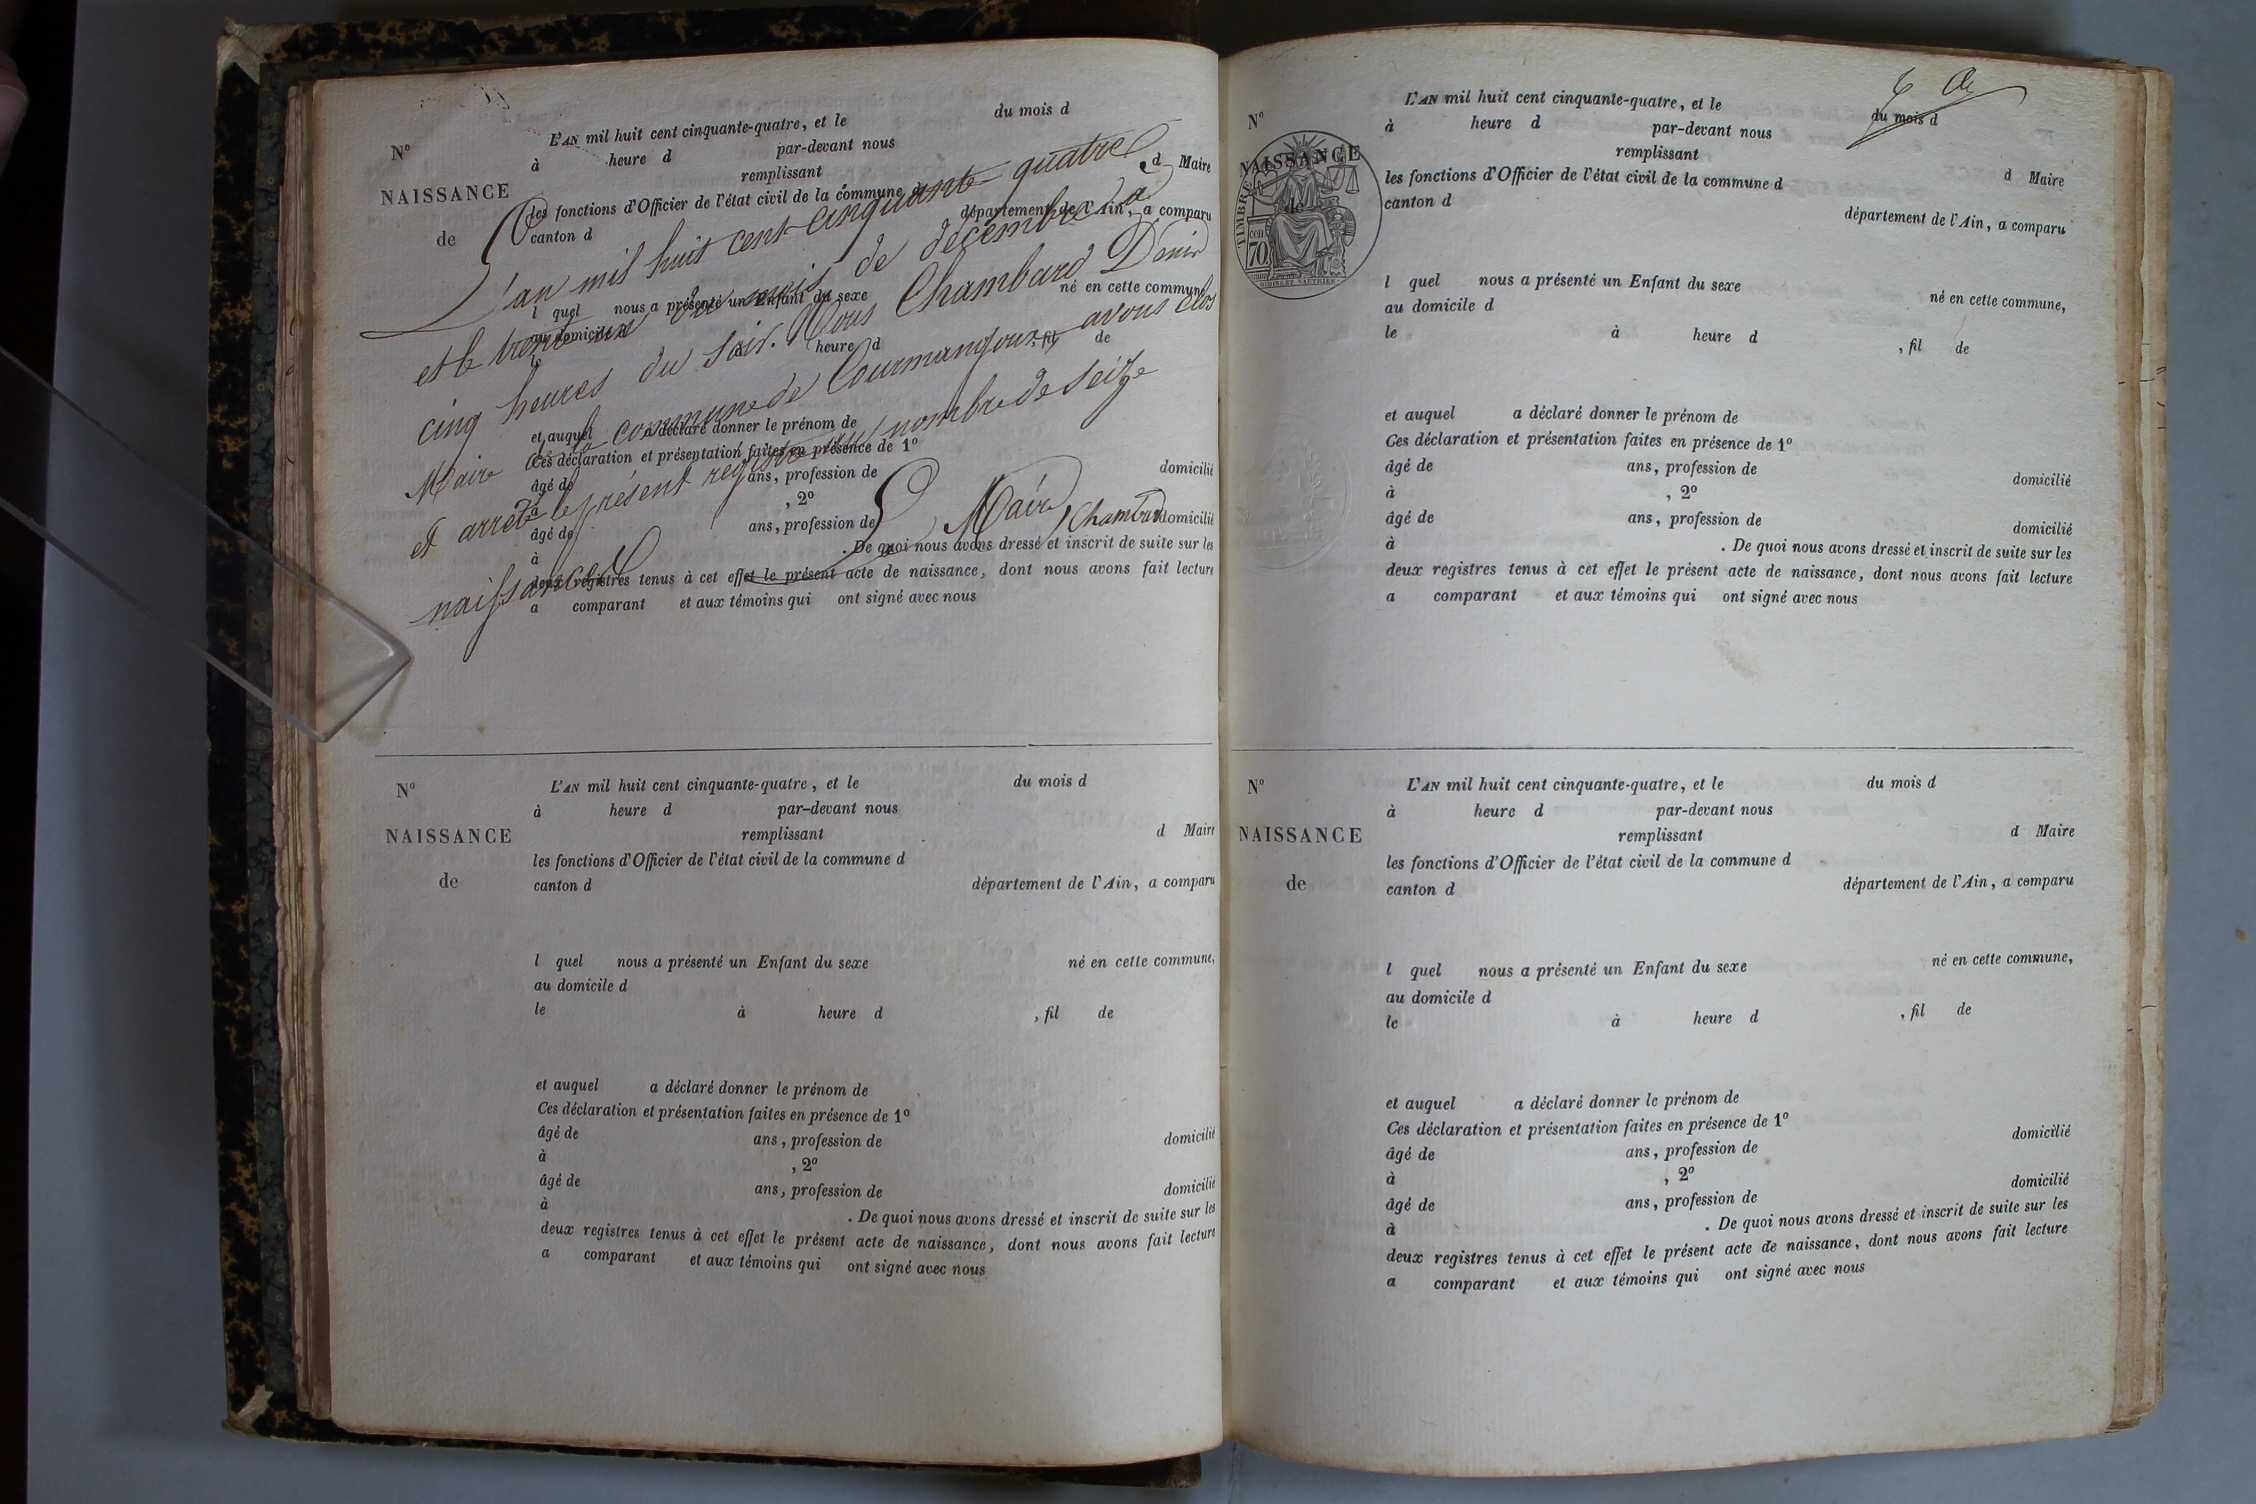 L'AN mil huit cent cinquante-quatre, et le du mois d
N° à heure d par-devant nous
remplissant d Maire
NAISSANCE
les fonctions d'Officier de l'état civil de la commune d
de canton d département de l'Ain, a comparu
l quel nous a présenté un Enfant du sexe né en cette commune,
au domicile d
le à heure d , fil de
et auquel a déclaré donner le prénom de
Ces déclaration et présentation faites en présence de 1°
âgé de ans, profession de domicilié
à , 2°
âgé de ans, profession de domicilié
à . De quoi nous avons dressé et inscrit de suite sur les
deux registres tenus à cet effet le présent acte de naissance, dont nous avons fait lecture
a comparant et aux témoins qui ont signé avec nous
L'an mil huit cent cinquante quatre
et le trente un du mois de décembre à
cinq heures du soir. Nous Chambard Denis
Maire de la commune de Courmangoux, avons clos
et arrêté le présent registre au nombre de seize
naissances
Le Maire
Chambard
N° L'AN mil huit cent cinquante-quatre, et le du mois d
à heure d par-devant nous
NAISSANCE remplissant d Maire
les fonctions d'Officier de l'état civil de la commune d
de canton d département de l'Ain, a comparu
l quel nous a présenté un Enfant du sexe né en cette commune,
au domicile d
le à heure d , fil de
et auquel a déclaré donner le prénom de
Ces déclaration et présentation faites en présence de 1°
âgé de ans, profession de domicilié
à , 2°
âgé de ans, profession de domicilié
à . De quoi nous avons dressé et inscrit de suite sur les
deux registres tenus à cet effet le présent acte de naissance, dont nous avons fait lecture
a comparant et aux témoins qui ont signé avec nous
L'AN mil huit cent cinquante-quatre, et le du mois d
N° à heure d par-devant nous
NAISSANCE remplissant d Maire
les fonctions d'Officier de l'état civil de la commune d
de canton d département de l'Ain, a comparu
TIMBRE
70
l quel nous a présenté un Enfant du sexe né en cette commune,
au domicile d
le à heure d , fil de
et auquel a déclaré donner le prénom de
Ces déclaration et présentation faites en présence de 1°
âgé de ans, profession de domicilié
à , 2°
âgé de ans, profession de domicilié
à . De quoi nous avons dressé et inscrit de suite sur les
deux registres tenus à cet effet le présent acte de naissance, dont nous avons fait lecture
a comparant et aux témoins qui ont signé avec nous
N° L'AN mil huit cent cinquante-quatre, et le du mois d
à heure d par-devant nous
NAISSANCE remplissant d Maire
les fonctions d'Officier de l'état civil de la commune d
de canton d département de l'Ain, a comparu
l quel nous a présenté un Enfant du sexe né en cette commune,
au domicile d
le à heure d , fil de
et auquel a déclaré donner le prénom de
Ces déclaration et présentation faites en présence de 1°
âgé de ans, profession de domicilié
à , 2°
âgé de ans, profession de domicilié
à . De quoi nous avons dressé et inscrit de suite sur les
deux registres tenus à cet effet le présent acte de naissance, dont nous avons fait lecture
a comparant et aux témoins qui ont signé avec nous